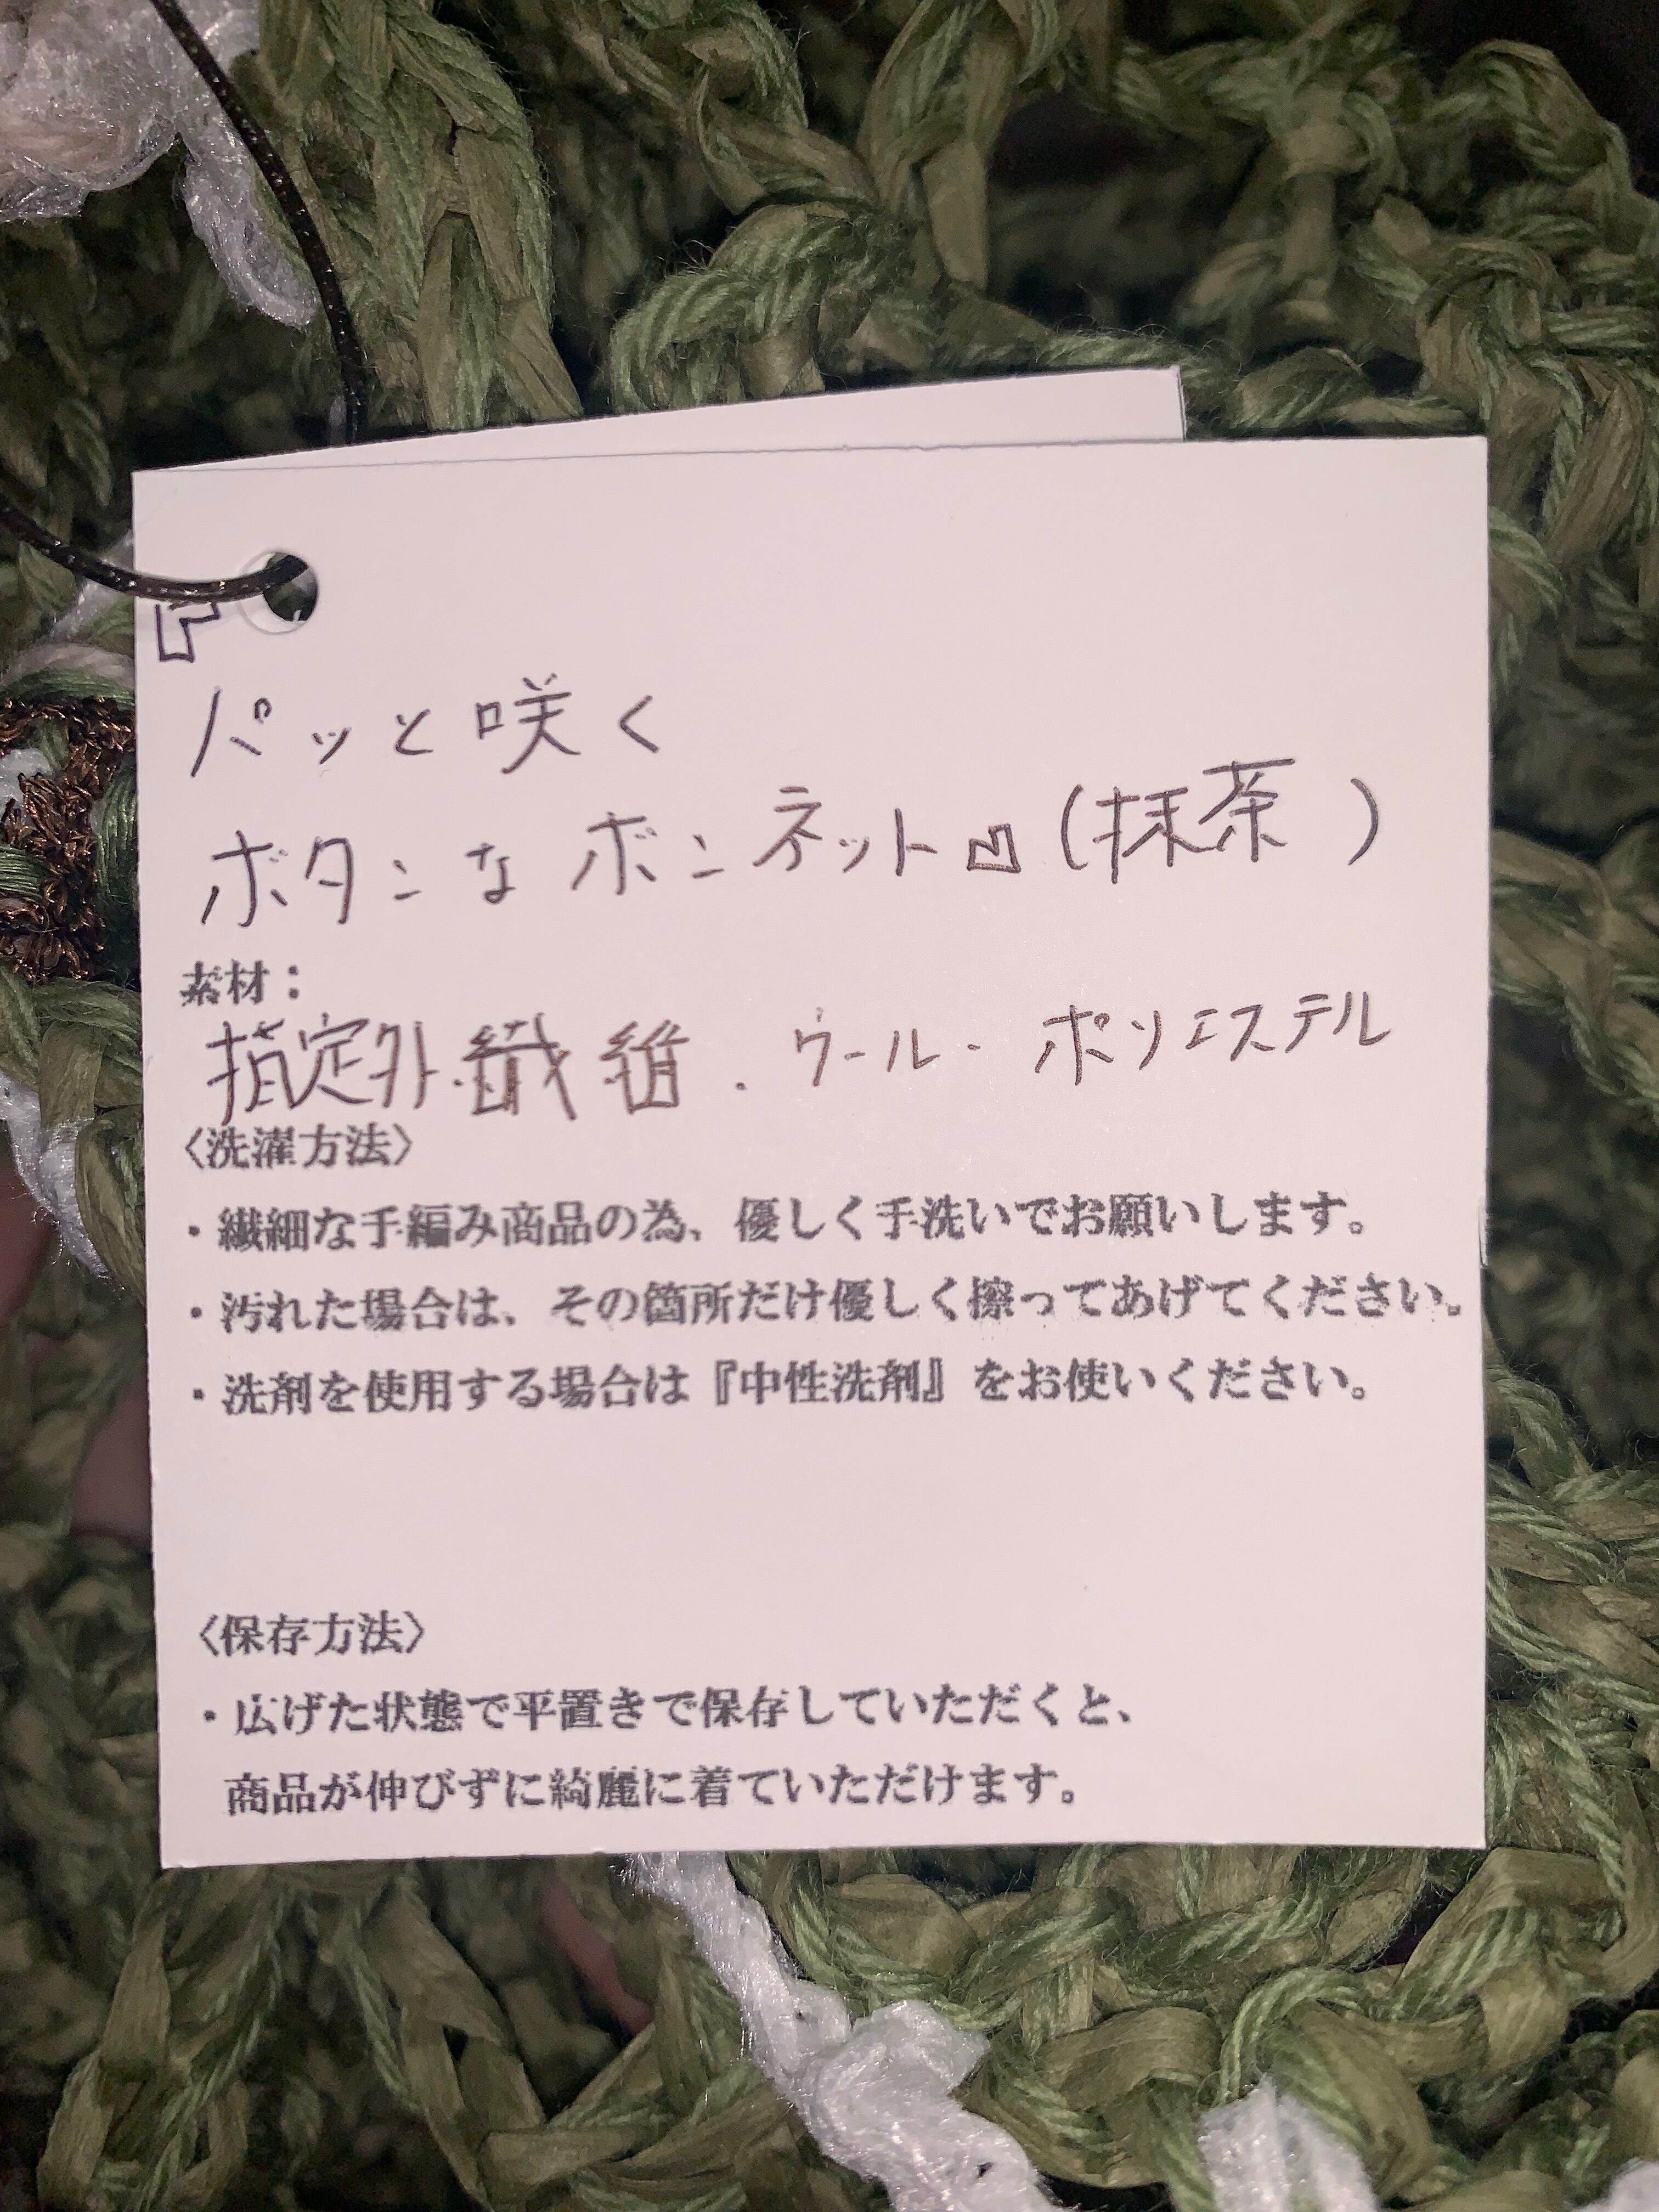 『
パッと咲く
ボタンなボンネット』(抹茶)
素材：
指定外繊維.ウール・ポリエステル
〈洗濯方法〉
・繊細な手編み商品の為、優しく手洗いでお願いします。
・汚れた場合は、その箇所だけ優しく擦ってあげてください。
・洗剤を使用する場合は『中性洗剤』をお使いください。
〈保存方法〉
・広げた状態で平置きで保存していただくと、
商品が伸びずに綺麗に着ていただけます。